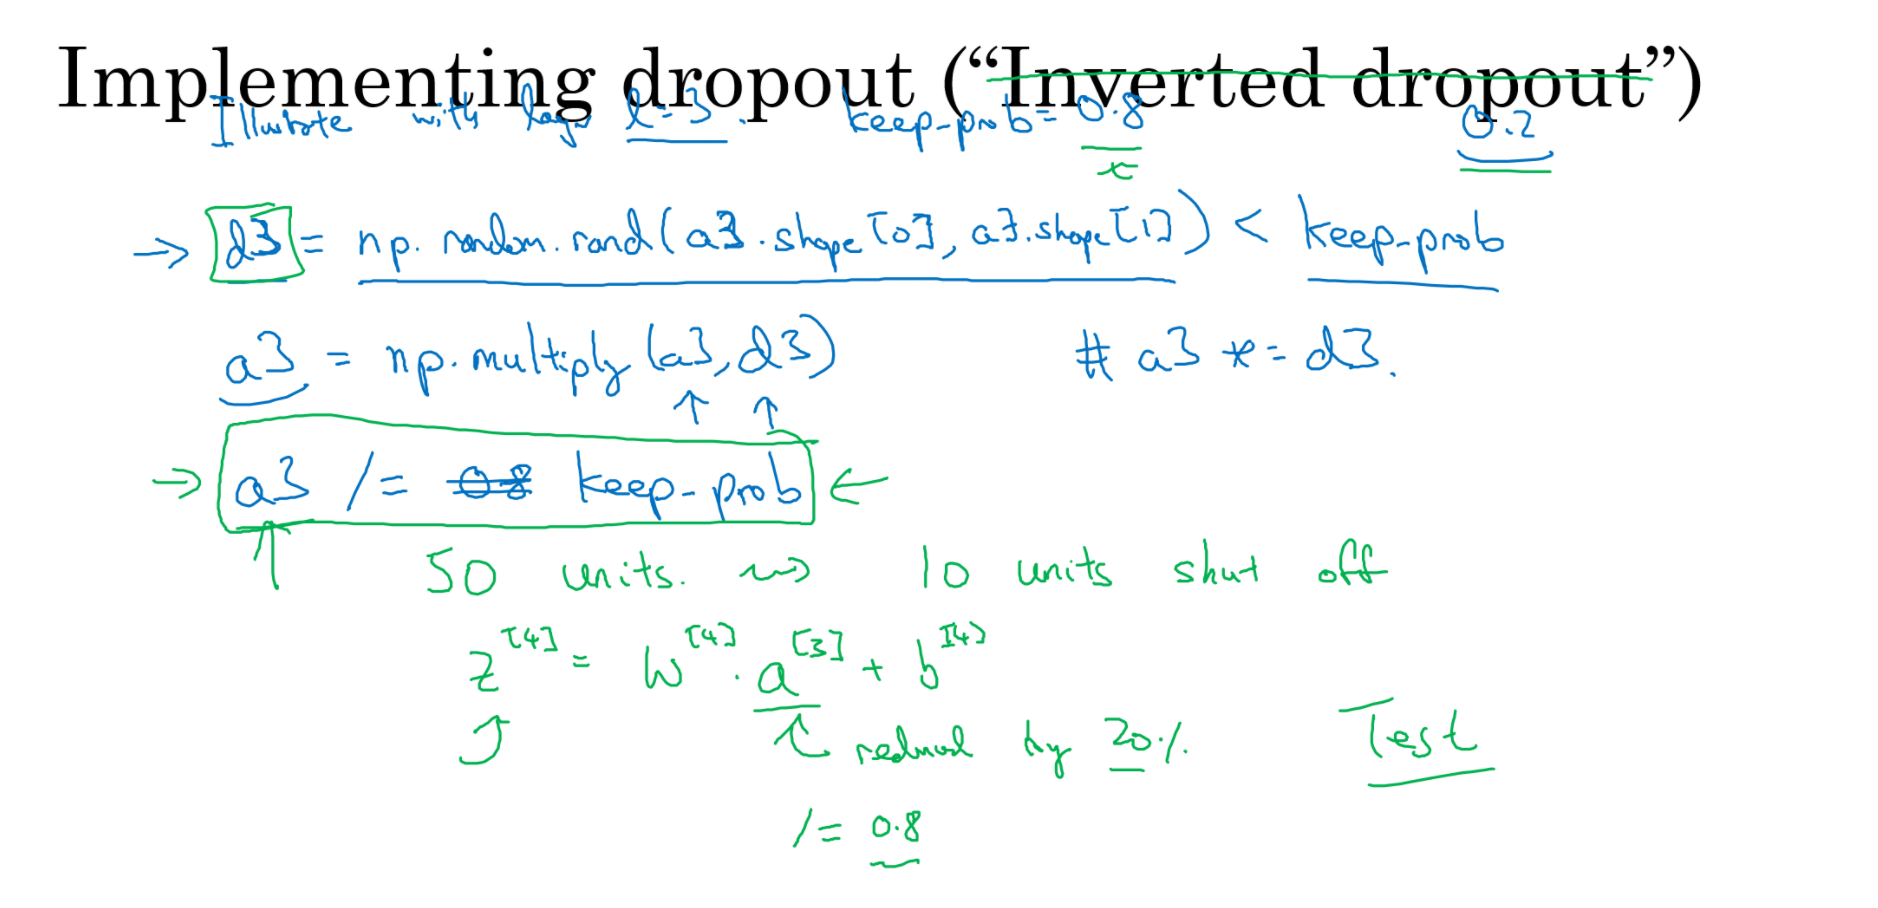 Implementing dropout (“Inverted dropout”)
Illustrate with layer l=3. keep-prob=0.8 0.2
→ d3 = np.random.rand(a3.shape[0], a3.shape[1]) < keep-prob
a3 = np.multiply(a3, d3) # a3 *= d3.
→ a3 /= 0.8 keep-prob ←
50 units. ⇝ 10 units shut off
z^[4] = W^[4] · a^[3] + b^[4]
reduced by 20% Test
/= 0.8